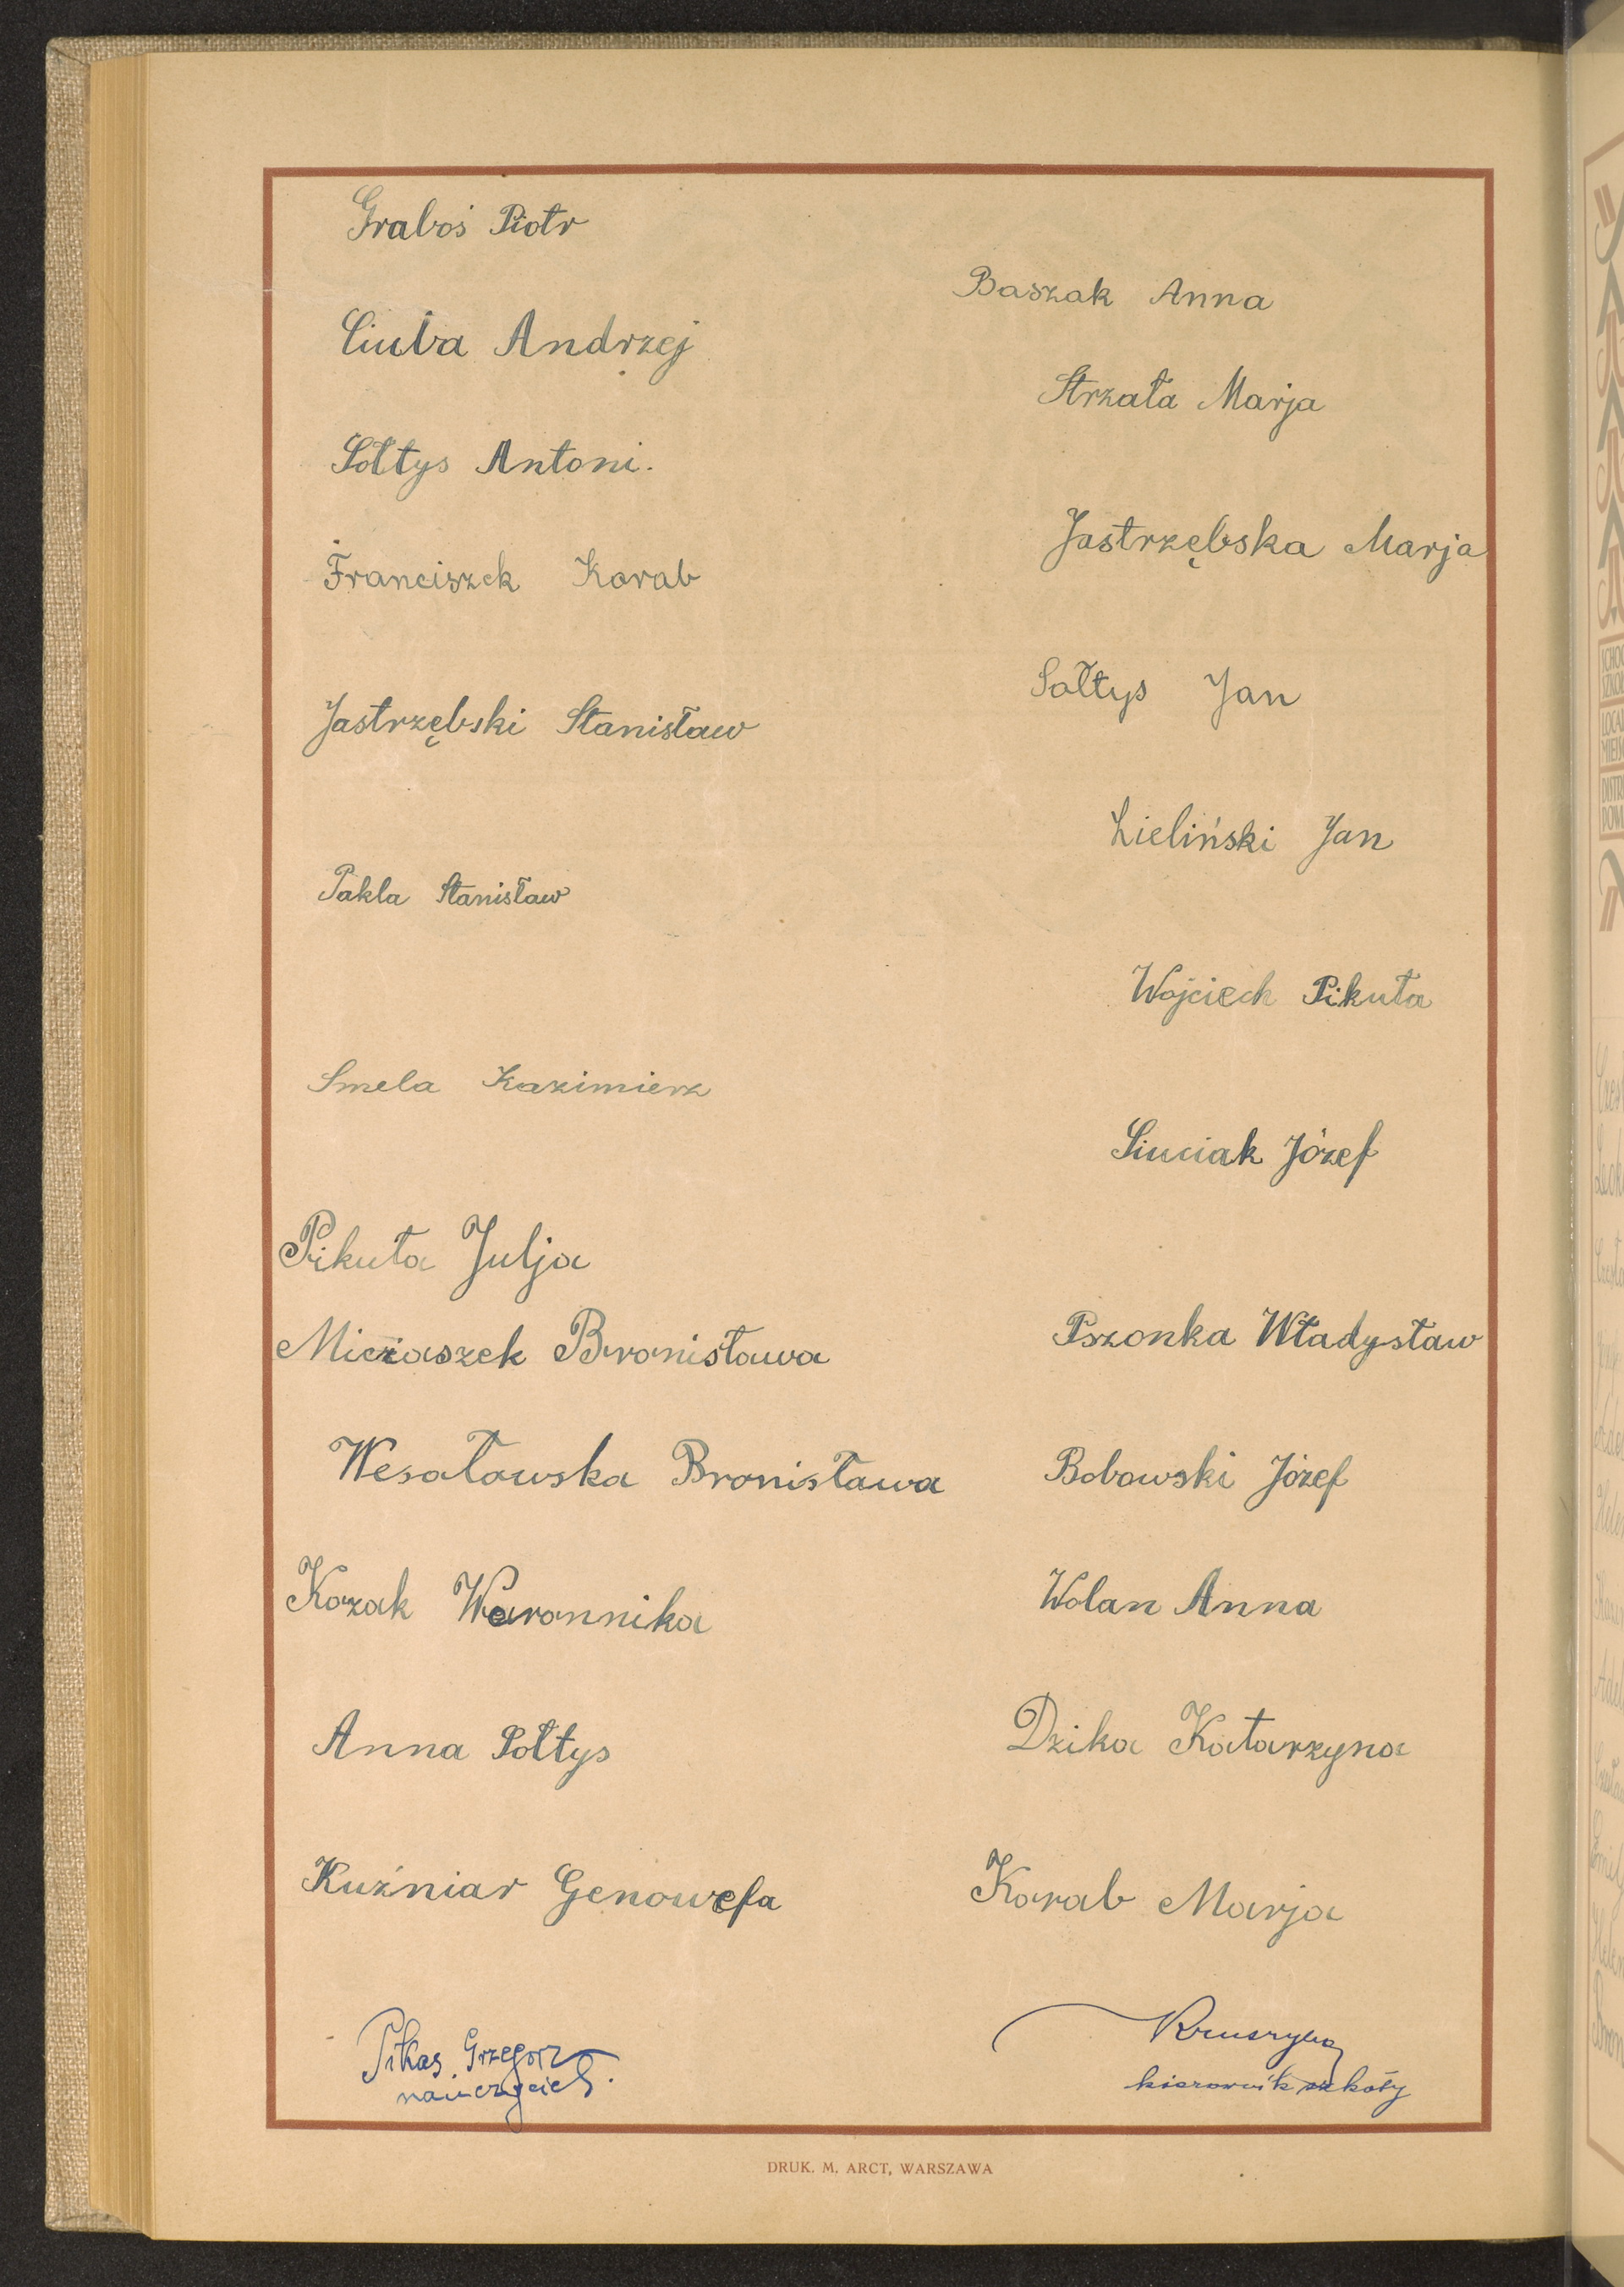 Graboś Piotr
Ciuba Andrzej
Sołtys Antoni.
Franciszek Korab
Jastrzębski Stanisław
Pakla Stanisław
Smela Kazimierz
Pikuła Julja
Mieziaszek Bronisława
Wesołowska Bronisława
Kozak Weronnika
Anna Sołtys
Kuźniar Genowefa
Grzegorz
nauczyciel.
Baszak Anna
Strzała Marja
Jastrzębska Marja
Sołtys Jan
Zieliński Jan
Wojciech Pikuła
Siuciak Józef
Pszonka Władysław
Bobowski Józef
Wolan Anna
Dzika Katarzyna
Korab Marja
kierownik szkoły
DRUK. M. ARCT, WARSZAWA